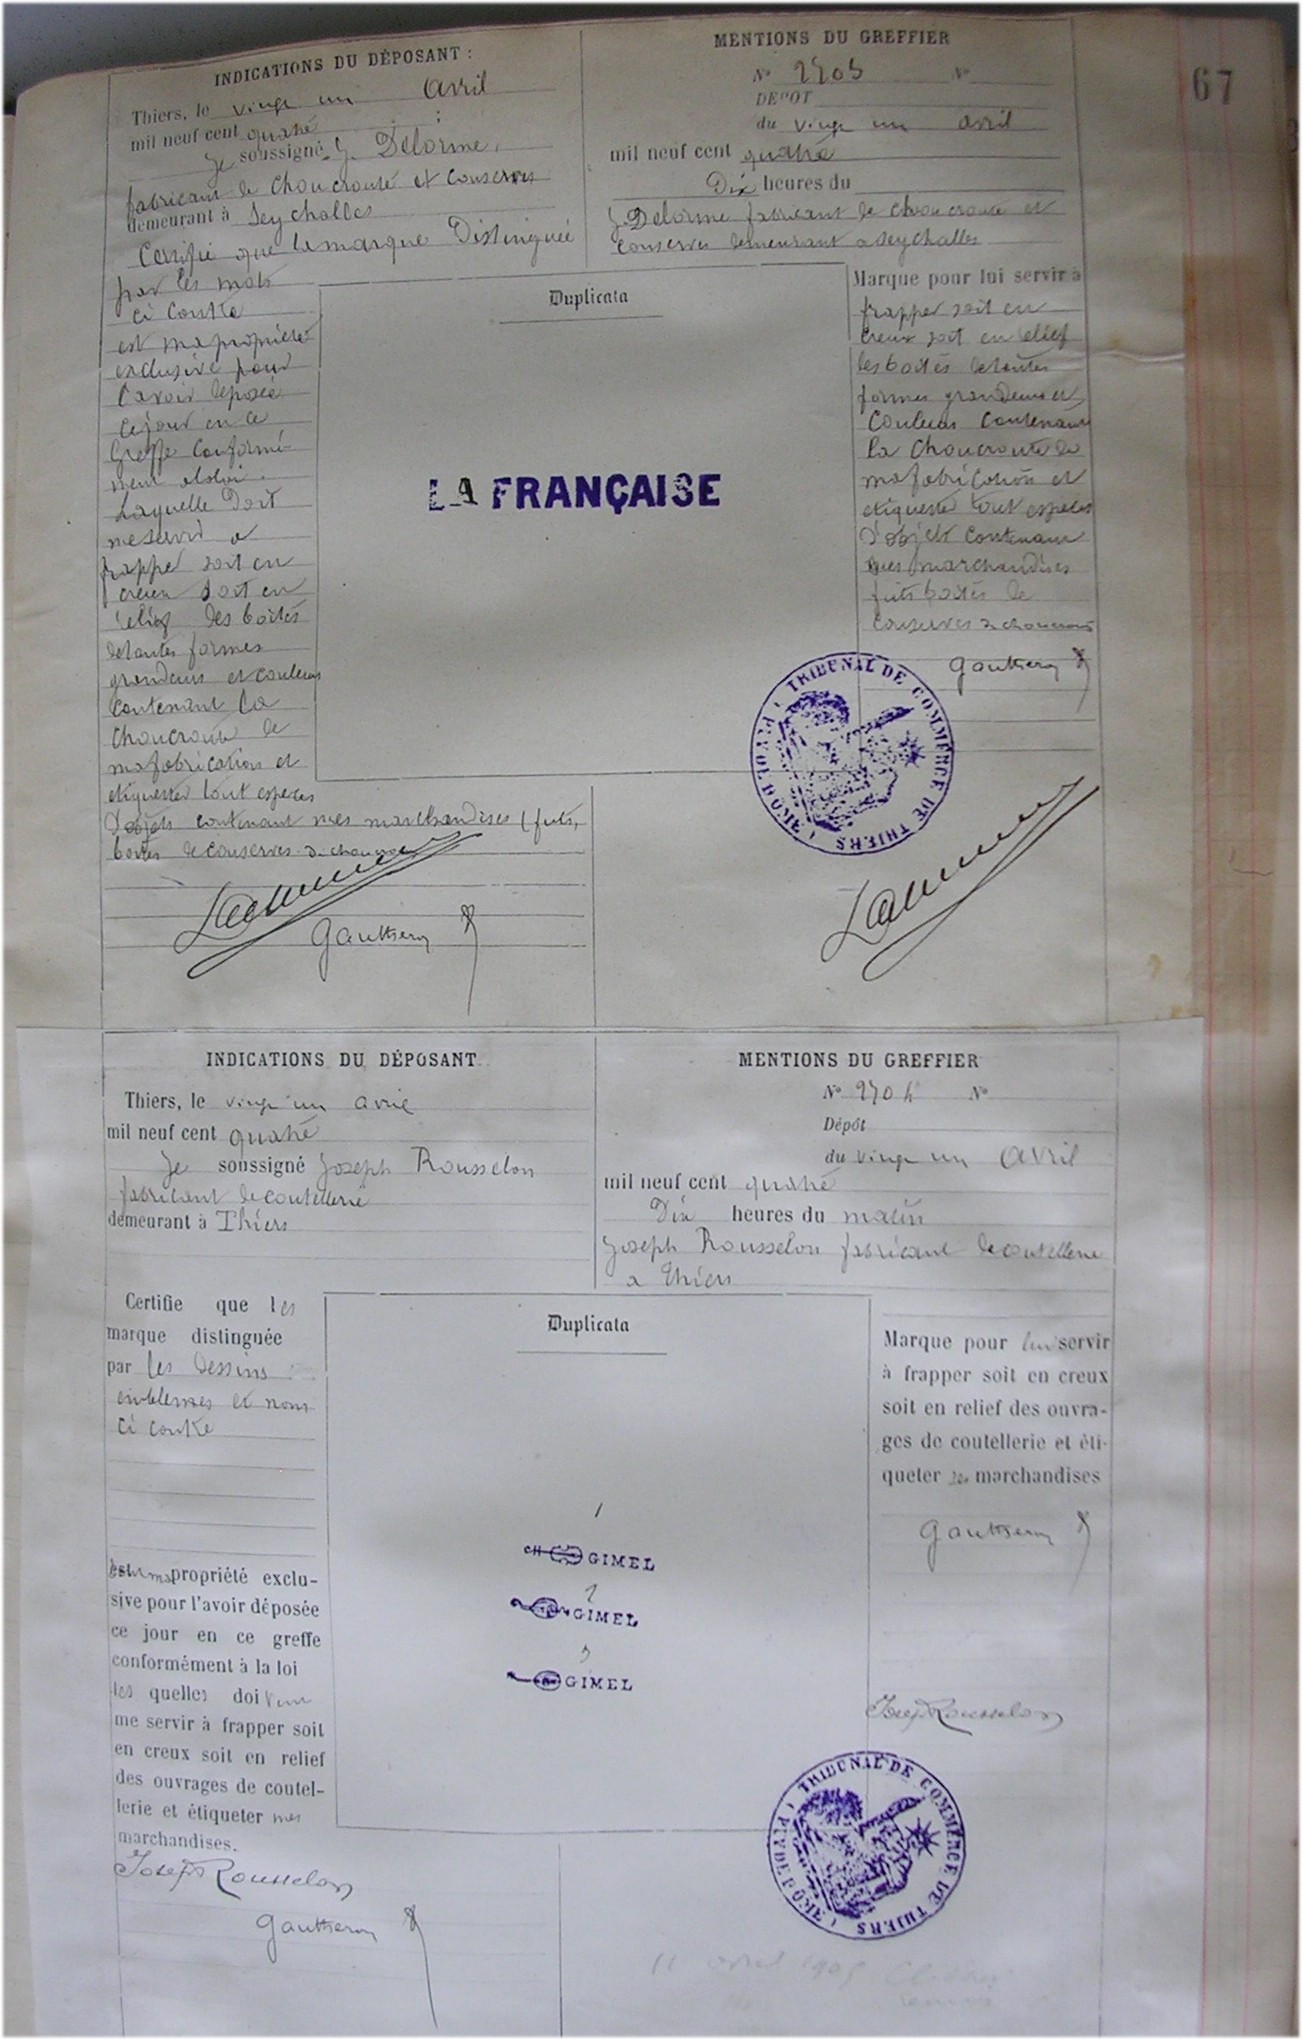 67
INDICATIONS DU DÉPOSANT :
Thiers, le vingt un avril
mil neuf cent quatre
Je soussigné J. Delorme,
fabricant de choucroute et conserves
demeurant à Seychalles
Certifie que la marque Distinguée
par les mots
ci contre
est ma propriété
exclusive pour
l'avoir déposée
ce jour en ce
Greffe conformé-
ment a la loi.
Laquelle doit
me servir a
frapper soit en
creux soit en
relief des boîtes
de toutes formes
grandeurs et couleurs
contenant la
choucroute de
ma fabrication et
etiqueter tout espèces
d'objets contenant mes marchandises (futs,
boîtes de conserves de choucroute
Gautheron
MENTIONS DU GREFFIER
N° 2703 N°
DÉPÔT
du vingt un avril
mil neuf cent quatre
Dix heures du
J Delorme fabricant de choucroute et
conserves demeurant a Seychalles
Duplicata
LA FRANÇAISE
Marque pour lui servir à
frapper soit en
creux soit en relief
les boîtes de toutes
formes grandeurs et
couleurs contenant
la choucroute de
ma fabrication et
etiqueter tout espèces
d'objets contenant
mes marchandises
futs boîtes de
conserves de choucroute
Gautheron
TRIBUNAL DE COMMERCE DE THIERS (PUY-DE-DÔME)
INDICATIONS DU DÉPOSANT
Thiers, le vingt un avril
mil neuf cent quatre
Je soussigné Joseph Rousselon
fabricant de coutellerie
demeurant à Thiers
Certifie que les
marque distinguée
par les dessins
emblemes et noms
ci contre
est ma propriété exclu-
sive pour l'avoir déposée
ce jour en ce greffe
conformément à la loi
les quelles doivent
me servir à frapper soit
en creux soit en relief
des ouvrages de coutel-
lerie et étiqueter mes
marchandises.
Joseph Rousselon
Gautheron
MENTIONS DU GREFFIER
N° 2704 N°
Dépôt
du vingt un avril
mil neuf cent quatre
Dix heures du matin
Joseph Rousselon fabricant de coutellerie
a Thiers
Duplicata
1
CH GIMEL
2
GIMEL
3
GIMEL
Marque pour lui servir
à frapper soit en creux
soit en relief des ouvra-
ges de coutellerie et éti-
queter ses marchandises
Gautheron
Joseph Rousselon
TRIBUNAL DE COMMERCE DE THIERS (PUY-DE-DÔME)
11 avril 1905